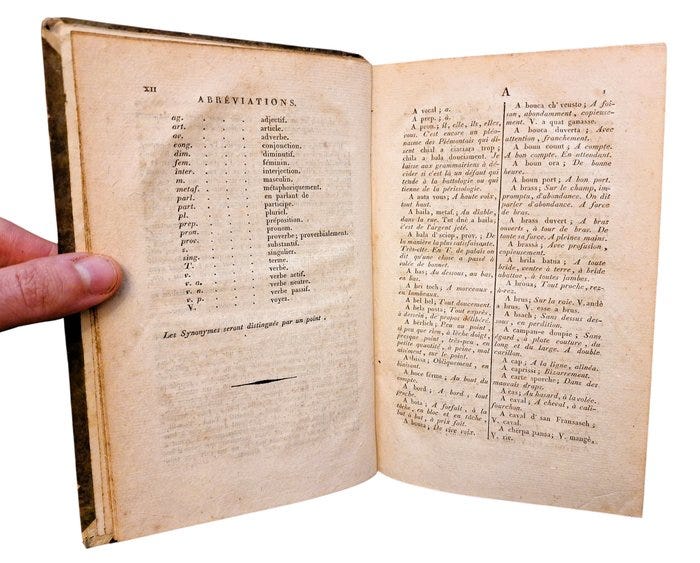 XII
ABRÉVIATIONS.
ag. . . . . adjectif.
art. . . . . article.
av. . . . . adverbe.
cong. . . . . conjonction.
dim. . . . . diminutif.
fem. . . . . féminin.
inter. . . . . interjection.
m. . . . . masculin.
metaf. . . . . métaphoriquement.
parl. . . . . en parlant de
part. . . . . participe.
pl. . . . . pluriel.
prep. . . . . préposition.
pron. . . . . pronom.
prov. . . . . proverbe; proverbialement.
s. . . . . substantif.
sing. . . . . singulier.
T. . . . . terme.
v. . . . . verbe.
v. a. . . . . verbe actif.
v. n. . . . . verbe neutre.
v. p. . . . . verbe passif.
V. . . . . voyez.
Les Synonymes seront distingués par un point.
A
1
A vocal; a.
A prep.; à.
A pron.; il, elle, ils, elles,
vous. C'est encore un pléo-
nasme des Piémontais qui di-
sent chial a ciariara trop;
chila a bala douciament. Je
laisse aux grammairiens à dé-
cider si c'est là un défaut qui
tende à la battologie ou qui
tienne de la périssologie.
A auta vous; A haute voix,
tout haut.
A baila, metaf.; Au diable,
dans la rue. Tut dnè a baila;
c'est de l'argent jeté.
A bala d'sciop, prov.; De
la manière la plus satisfaisante.
Très-cito. En T. de palais on
dit qu'une chose a passé à
volée de bonnet.
A bas; Au dessous, au bas,
en bas.
A bei toch; A morceaux,
en lambeaux.
A bel bel; Tout doucement.
A bela posta; Tout exprès,
à dessein, de propos délibéré.
A berlich; Peu au point,
si peu que rien, à lèche doigt,
presque point, très-peu, en
petite quantité, à peine, mal
aisément, sur le point.
A bissa; Obliquement, en
biaisant.
A boce ferme; Au bout du
compte.
A bord; A bord, tout
proche.
A bota; A forfait, à la
tâche, en bloc et en tâche
but à but, à prix fait.
A bouca; De vive voix.
A bouca ch' veusto; A foi-
son, abondamment, copieuse-
ment. V. a quat ganasse.
A bouca duverta; Avec
attention, franchement.
A boun count; A compte.
A bon compte. En attendant.
A boun ora; De bonne
heure.
A boun port; A bon port.
A brass; Sur le champ, im-
promptu, d'abondance. On dit
parler d'abondance. A force
de bras.
A brass duvert; A bras
ouverts, à tour de bras. De
toute sa force. A pleines mains.
A brassà; Avec profusion,
copieusement.
A brila batua; A toute
bride, ventre à terre, à bride
abattue, à toutes jambes.
A broua; Tout proche, rez-
à-rez.
A brus; Sur la raie. V. andè
a brus. V. esse a brus.
A bsach; Sans dessus des-
sous, en perdition.
A campan-e doupie; Sans
égard, à plate couture, du
long et du large. A double
carillon.
A cap; A la ligne, alinéa.
A caprissi; Bizarrement.
A carte sporche; Dans des
mauvais draps.
A cas; Au hasard, à la volée.
A caval; A cheval, à cali-
fourchon.
A caval d'san Fransesch;
V. caval.
A cherpa pansa; V. mangè.
V. rie.